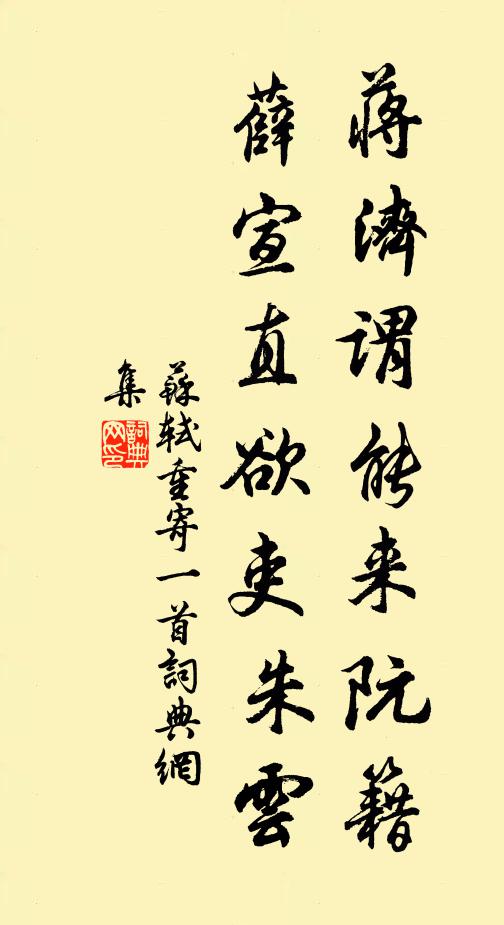 蔣濟謂能来阮籍
薛宣直欲吏朱雲
蘇軾重寄一首詞典網
集
詞典
网印